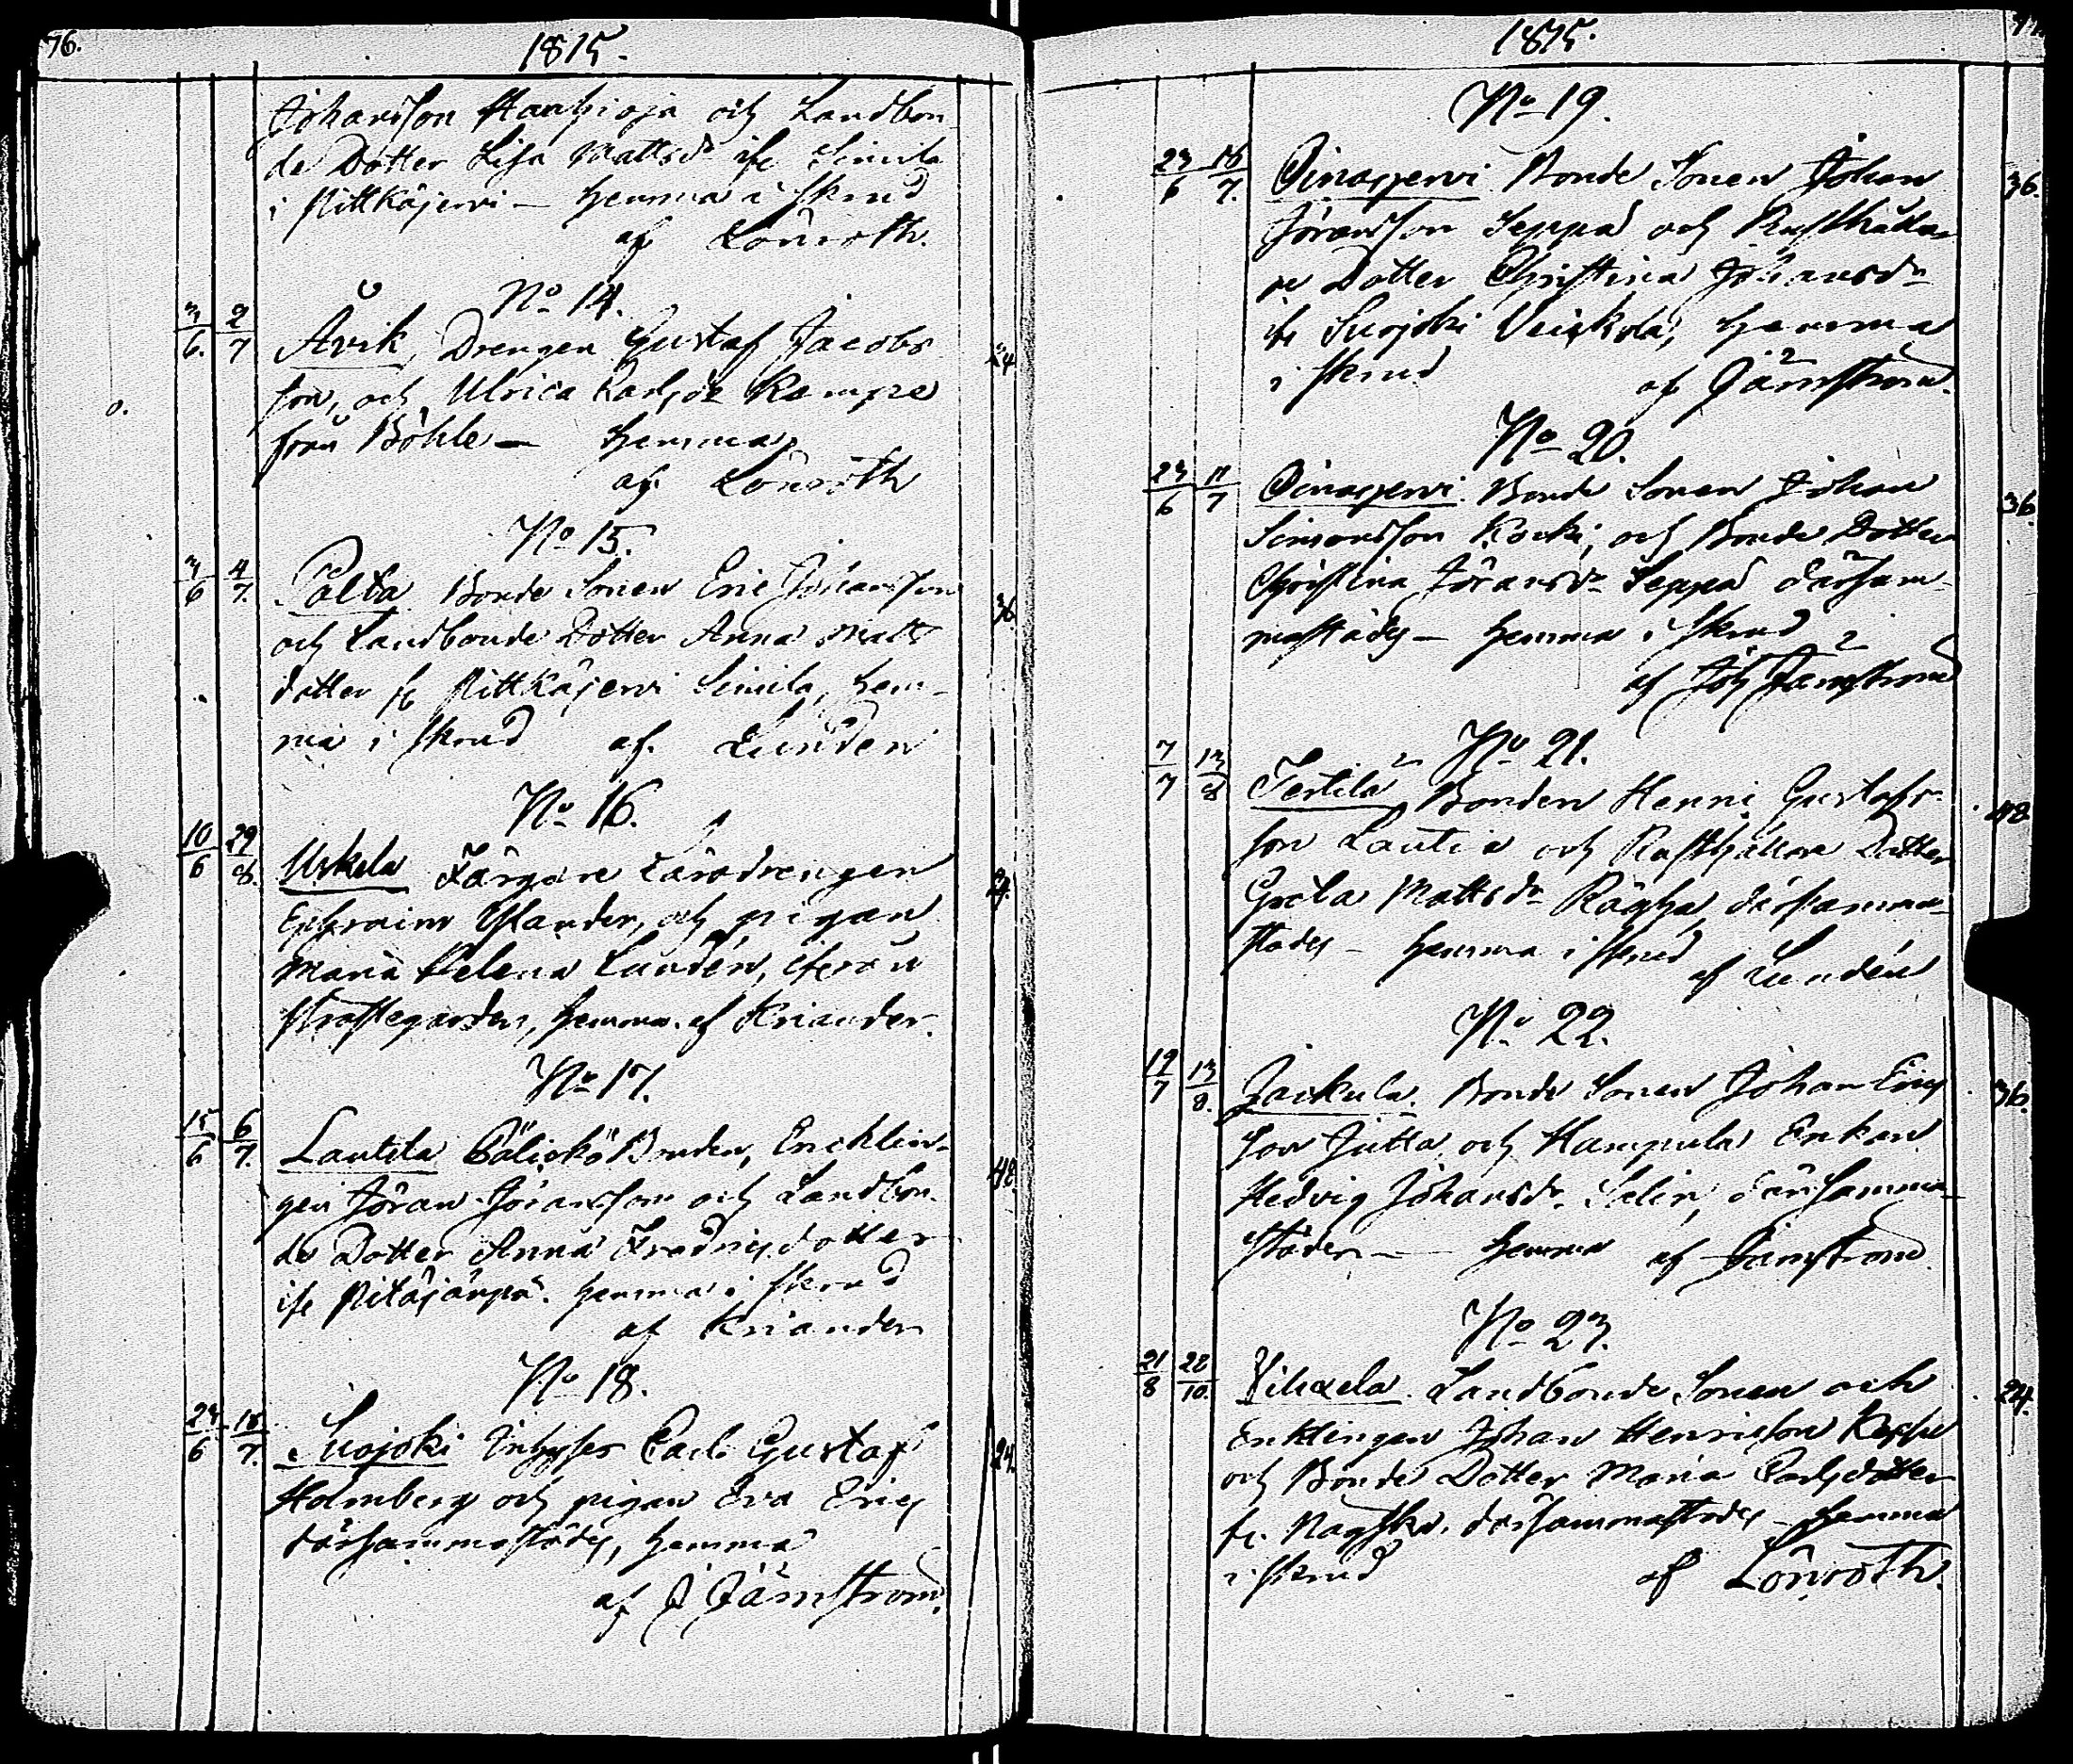 76.
1815.
Johansson Hanhioja och Landbon-
de Dotter Lisa Mattsdr ifr Simila
i Pittkäjervi - hemma i skrud
af Lönroth.
No 14.
3/6. 2/7 Åvik, Drengen Gustaf Jacobs 24
son, och Ulrica Carlsdr Kempe
från Böhle - hemma,
af Lönroth
No 15.
3/6 4/7. Palta Bonde Sonen Eric Johansson 36
och Landbonde Dotter Anna Matts
dotter fr Pittkäjervi Simila, hem-
ma i skrud af Lunden
No 16.
10/6 29/8. Urkela Färgare Lärodrengen 24.
Ephraim Ylander, och pigan
Maria Helena Lundén, ifrån
Prostegården, hemma. af Kriander.
No 17.
15/6 6/7. Lautela Bonden, Encklin- 48.
gen Jöran Jöransson och Landbon-
de Dotter Anna Fredricsdotter
ifr hemma i skrud
af Kriander
No 18.
24/6 18/7. Suojoki Inhyses Carl Gustaf 24.
Holmberg och pigan Eva Erics
därsammastädes, hemma
af J Jämstrom.
1815.
No 19.
23/6 16/7. Oinasjervi Bonde Sonen Johan 36.
Jöransson Seppä och Rusthålla-
re Dotter Christina Johansdr
ifr Suojoki hemma
i skrud af Jämstrom.
No 20.
23/6 11/7 Oinasjervi. Bonde Sonen Johan 36.
Simonsson Kocki, och Bonde Dotter
Christina Jöransdr Seppä därsam-
mastädes - hemma i skrud
af Joh Jämstrom
No 21.
7/7 13/8 Terttilä Bonden Henric Gustafs- 48
son Lautia och Rusthållare Dotter
Greta Mattsdr därsamma-
städes - hemma i skrud
af Lundén
No 22.
19/7 13/8. Jackula. Bonde Sonen Johan Erics 36.
son Jutta, och Hampula Enkan
Hedvig Johansdr Salin, därsamma-
städes - hemma af Jämstrom
No 23.
21/8 22/10. Viluxela. Landbonde Sonen och 24.
Enklingen Johan Henricsson
och Bonde Dotter Maria Carlsdotter
fr. därsammastädes - hemma
i skrud af Lönroth.